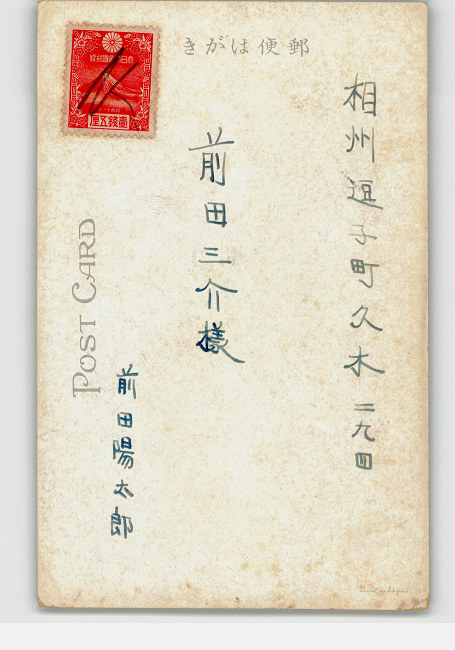 きがは便郵
相州逗子町久木二九四
前田三介様
前田陽太郎
POST CARD
壹錢五厘